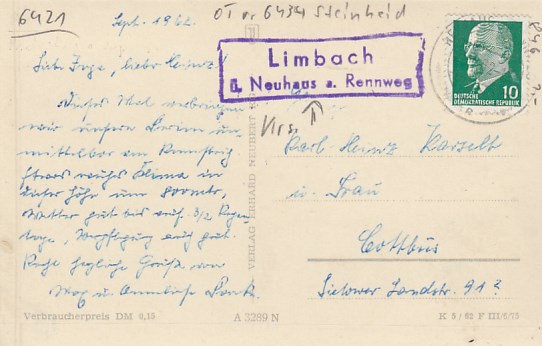 6421
OT v 6434 Steinheid
Sept. 1962
Limbach
ü. Neuhaus a. Rennweg
DEUTSCHE
DEMOKRATISCHE REPUBLIK
10
Liebe Inge, lieber Heinz!
Dieses Mal verbringen
wir unsere Ferien un-
mittelbar am Rennsteig.
Etwas rauhes Klima in
dieser Höhe um 800 mtr,
Wetter gut bis auf 3 1/2 Regen-
tage, Verpflegung auch gut.
Recht herzliche Grüße von
Max u. Anneliese
Krs.
Karl-Heinz Karselt
u. Frau
Cottbus
Sielower Landstr. 91a
VERLAG ERHARD NEUBERT
Verbraucherpreis DM 0,15
A 3289 N
K 5/62 F III/6/15